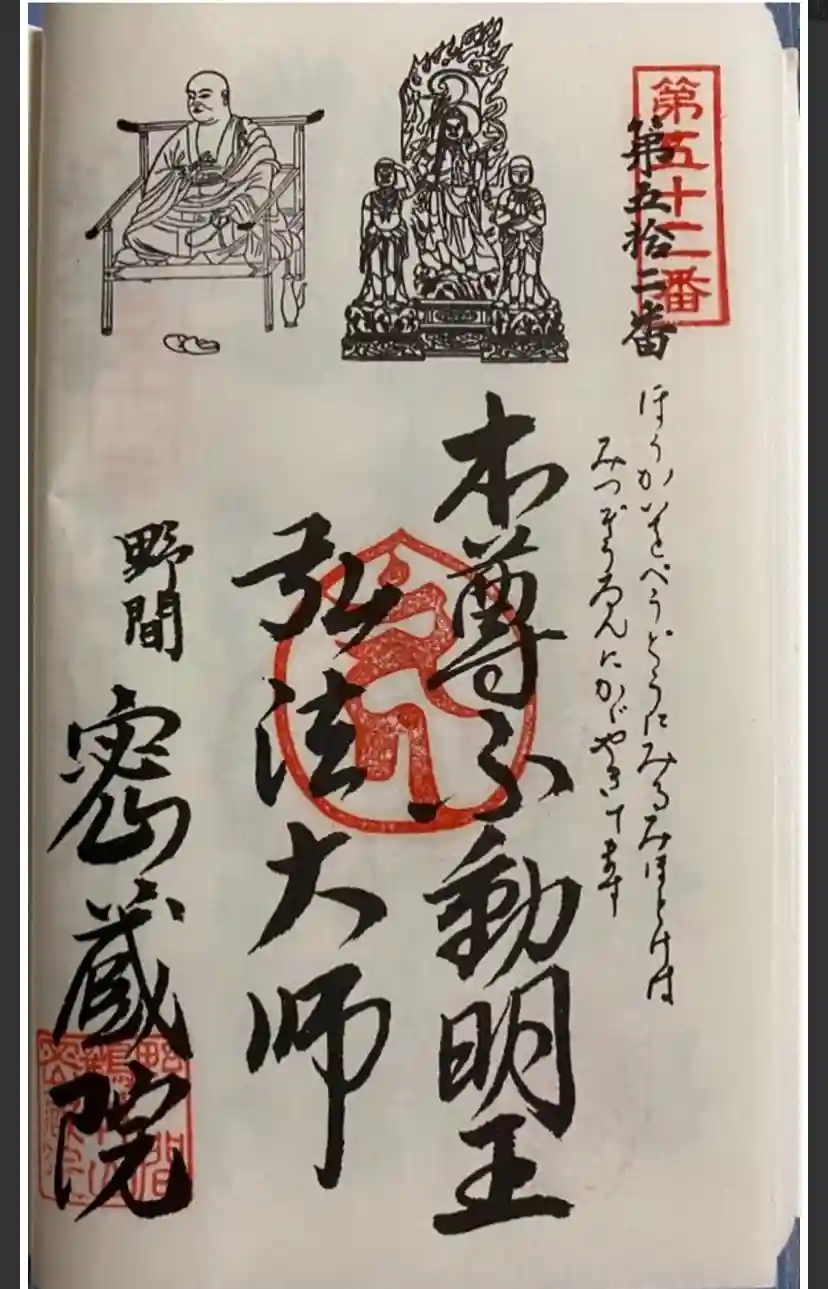 第五十二番
第五拾二番
ほうかいをべうどうにみるみほとけは
みつぎょうゐんにかゞやきてます
本尊不動明王
弘法大師
野間
密蔵院